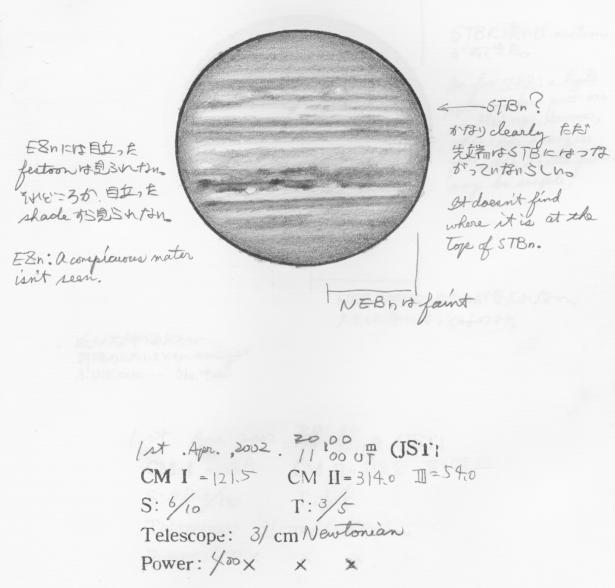 STBn?
かなり clearly ただ
先端はSTBにはつな
がっていないらしい。
It doesn't find
where it is at the
Top of STBn.
EZnには目立った
festoonは見られない。
それどころか、目立った
shadeすら見られない。
EZn: A conspicuous mater
isn't seen.
NEBnは faint
1st. Apr., 2002. 20h00m (JST)
11 00 UT
CM I = 121.5 CM II = 314.0 III = 54.0
S: 6/10 T: 3/5
Telescope: 31 cm Newtonian
Power: 400× × ×